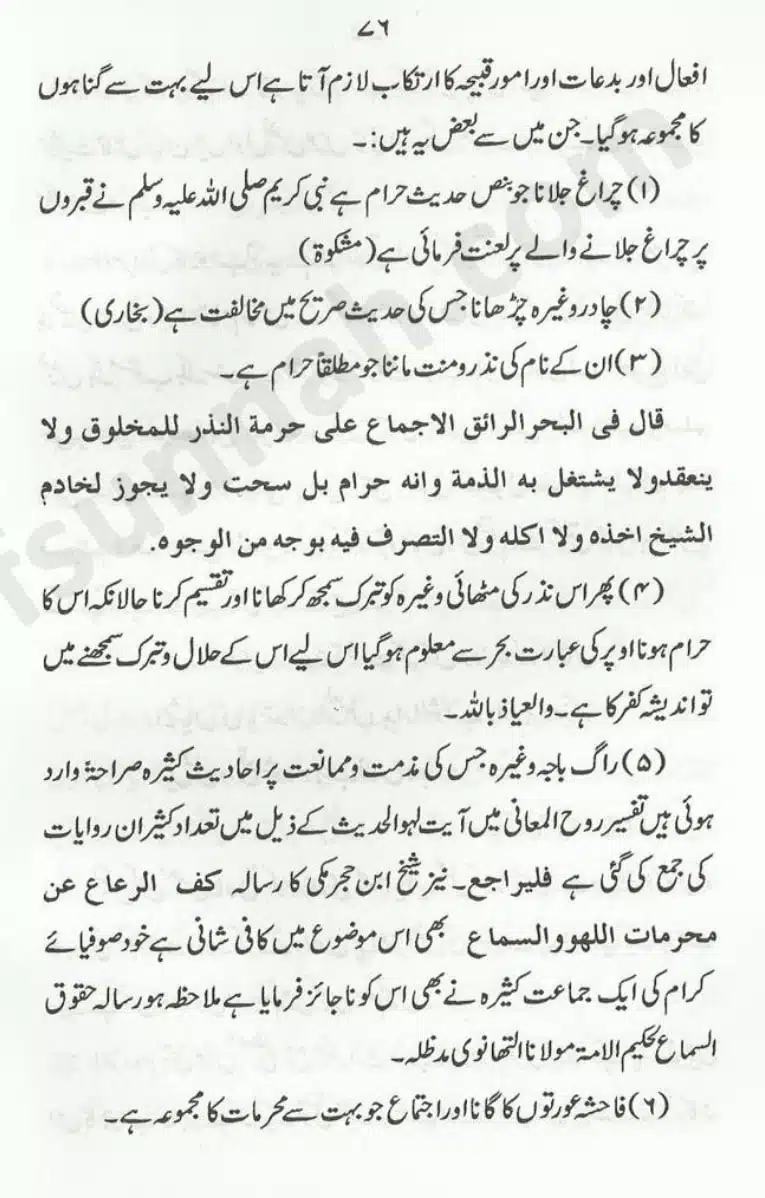 ۷۶
افعال اور بدعات اور امور قبیحہ کا ارتکاب لازم آتا ہے اس لیے بہت سے گناہوں
کا مجموعہ ہوگیا۔ جن میں سے بعض یہ ہیں:۔
(۱) چراغ جلانا جو بنص حدیث حرام ہے نبی کریم صلی اللہ علیہ وسلم نے قبروں
پر چراغ جلانے والے پر لعنت فرمائی ہے (مشکوۃ)
(۲) چادر وغیرہ چڑھانا جس کی حدیث صریح میں مخالفت ہے (بخاری)
(۳) ان کے نام کی نذر ومنت ماننا جو مطلقاً حرام ہے۔
قال فی البحرالرائق الاجماع علی حرمة النذر للمخلوق ولا
ینعقدولا یشتغل به الذمة وانه حرام بل سحت ولا یجوز لخادم
الشیخ اخذه ولا اکله ولا التصرف فیه بوجه من الوجوه.
(۴) پھر اس نذر کی مٹھائی وغیرہ کو تبرک سمجھ کر کھانا اور تقسیم کرنا حالانکہ اس کا
حرام ہونا اوپر کی عبارت بحر سے معلوم ہوگیا اس لیے اس کے حلال وتبرک سمجھنے میں
تو اندیشہ کفر کا ہے۔ والعیاذ باللہ۔
(۵) راگ باجہ وغیرہ جس کی مذمت وممانعت پر احادیث کثیرہ صراحۃً وارد
ہوئی ہیں تفسیر روح المعانی میں آیت لہوالحدیث کے ذیل میں تعداد کثیر ان روایات
کی جمع کی گئی ہے فلیراجع۔ نیز شیخ ابن حجر مکی کا رسالہ کف الرعاع عن
محرمات اللهو والسماع بھی اس موضوع میں کافی شانی ہے خود صوفیائے
کرام کی ایک جماعت کثیرہ نے بھی اس کو ناجائز فرمایا ہے ملاحظہ ہو رسالہ حقوق
السماع لحکیم الامۃ مولانا التھانوی مدظلہ۔
(۶) فاحشہ عورتوں کا گانا اور اجتماع جو بہت سے محرمات کا مجموعہ ہے۔